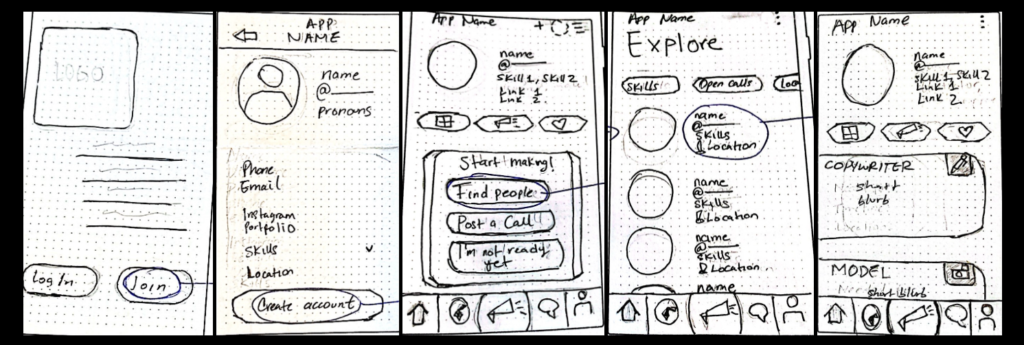 LOGO
Log In
Join
APP
NAME
name
@
pronouns
Phone
Email
Instagram
Portfolio
Skills
Location
Create account
App Name
name
@
Skill 1, Skill 2
Link 1
Link 2
Start making!
Find people
Post a Call
I'm not ready
yet
App Name
Explore
Skills
Open calls
Loc
name
@
Skills
Location
name
@
Skills
& Location
name
@
Skills
& Location
name
App Name
name
@
Skill 1, Skill 2
Link 1
Link 2
COPYWRITER
short
blurb
MODEL
short blurb